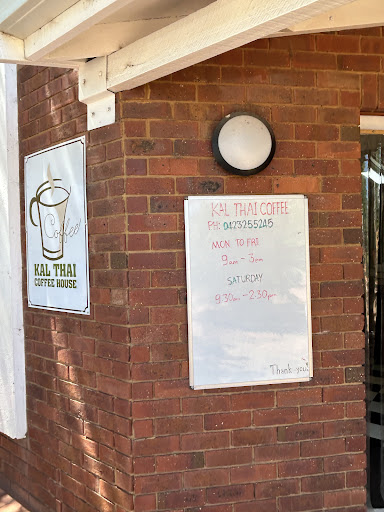 Coffee
KAL THAI
COFFEE HOUSE
KAL THAI COFFEE
PH: 0423255245
MON TO FRI
9am - 3am
SATURDAY
9:30am - 2:30pm
Thank you!